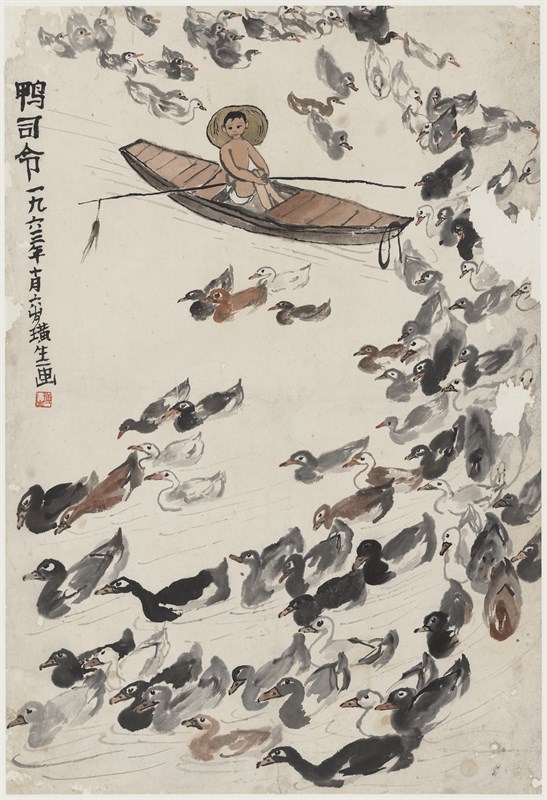 鸭司令一九六三年十月六岁璜生画